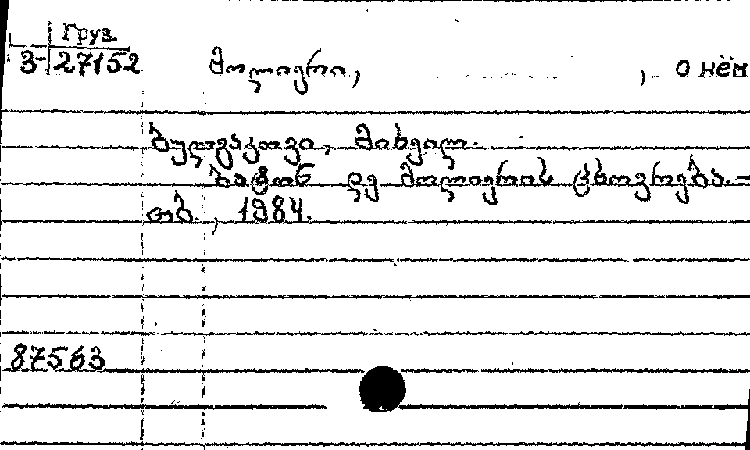 Груз
3- 27152
მოლიერი, , о нём
ბულგაკოვი, მიხეილ.
ბატონ დე მოლიერის ცხოვრება.–
თბ., 1984.
87563